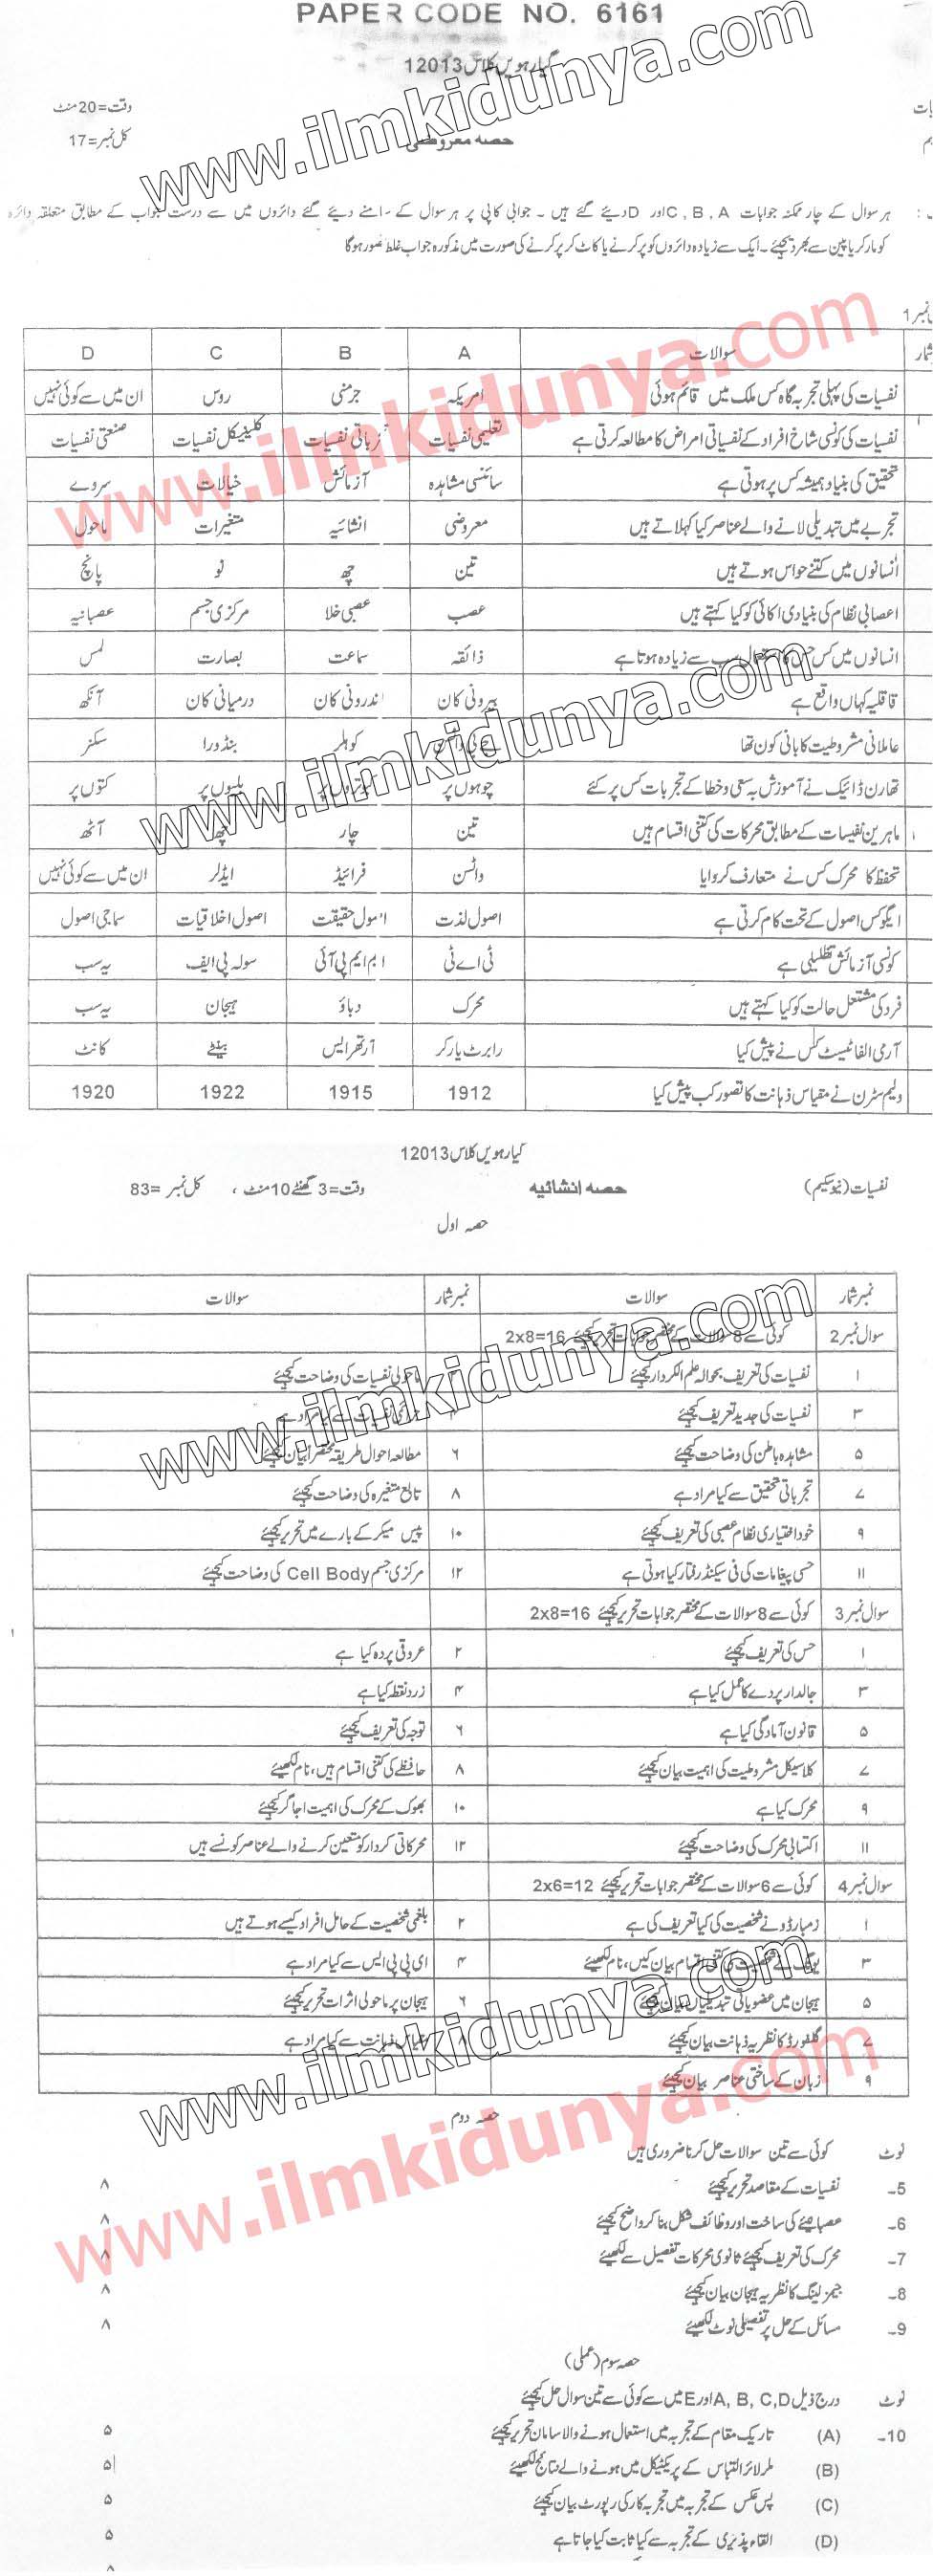 PAPER CODE NO. 6161
گیارہویں کلاس 12013
وقت=20 منٹ
کل نمبر=17
حصہ معروضی
ہر سوال کے چار ممکنہ جوابات A ,B ,C اور D دیئے گئے ہیں ۔ جوابی کاپی پر ہر سوال کے سامنے دیئے گئے دائروں میں سے درست جواب کے مطابق متعلقہ دائرہ
کو مارکر یا پین سے بھر دیجئے۔ ایک سے زیادہ دائروں کو پر کرنے یا کاٹ کر پر کرنے کی صورت میں مذکورہ جواب غلط تصور ہوگا
نمبر 1
شمار سوالات A B C D
نفسیات کی پہلی تجربہ گاہ کس ملک میں قائم ہوئی امریکہ جرمنی روس ان میں سے کوئی نہیں
نفسیات کی کونسی شاخ افراد کے نفسیاتی امراض کا مطالعہ کرتی ہے تعلیمی نفسیات نفسیات کلینیکل نفسیات صنعتی نفسیات
تحقیق کی بنیاد ہمیشہ کس پر ہوتی ہے سائنسی مشاہدہ آزمائش خیالات سروے
تجربے میں تبدیلی لانے والے عناصر کیا کہلاتے ہیں معروضی انشائیہ متغیرات ماحول
انسانوں میں کتنے حواس ہوتے ہیں تین چھ نو پانچ
اعصابی نظام کی بنیادی اکائی کو کیا کہتے ہیں عصب عصبی خلا مرکزی جسم عصبانیہ
انسانوں میں کس حس کا استعمال سب سے زیادہ ہوتا ہے ذائقہ سماعت بصارت لمس
قاقلیہ کہاں واقع ہے بیرونی کان اندرونی کان درمیانی کان آنکھ
عاملانی مشروطیت کا بانی کون تھا کوہلر بنڈورا سکنر
تھارن ڈائیک نے آموزش بہ سعی و خطا کے تجربات کس پر کئے چوہوں پر کبوتروں پر بلیوں پر کتوں پر
ماہرین نفسیات کے مطابق محرکات کی کتنی اقسام ہیں تین چار چھ آٹھ
تحفظ کا محرک کس نے متعارف کروایا واٹسن فرائیڈ ایڈلر ان میں سے کوئی نہیں
ایگو کس اصول کے تحت کام کرتی ہے اصول لذت اصول حقیقت اصول اخلاقیات سماجی اصول
کونسی آزمائش تظلیلی ہے ٹی اے ٹی ایم ایم پی آئی سولہ پی ایف یہ سب
فرد کی مشتعل حالت کو کیا کہتے ہیں محرک دباؤ ہیجان یہ سب
آرمی الفا ٹیسٹ کس نے پیش کیا رابرٹ یارکر آرتھر ایس بینے کانٹ
ولیم سٹرن نے مقیاس ذہانت کا تصور کب پیش کیا 1912 1915 1922 1920
گیارہویں کلاس 12013
نفسیات (نیو سکیم) حصہ انشائیہ وقت=3 گھنٹے 10 منٹ ، کل نمبر =83
حصہ اول
نمبر شمار سوالات نمبر شمار سوالات
سوال نمبر 2 کوئی سے 8 سوالات کے مختصر جوابات تحریر کیجئے 2x8=16
۱ نفسیات کی تعریف بحوالہ علم الکردار کیجئے ماحولی نفسیات کی وضاحت کیجئے
۳ نفسیات کی جدید تعریف کیجئے نفسیات سے کیا مراد ہے
۵ مشاہدہ باطن کی وضاحت کیجئے ۶ مطالعہ احوال طریقہ مختصراً بیان کیجئے
۷ تجرباتی تحقیق سے کیا مراد ہے ۸ تابع متغیرہ کی وضاحت کیجئے
۹ خود اختیاری نظام عصبی کی تعریف کیجئے ۱۰ پیس میکر کے بارے میں تحریر کیجئے
۱۱ حسی پیغامات کی فی سیکنڈ رفتار کیا ہوتی ہے ۱۲ مرکزی جسم Cell Body کی وضاحت کیجئے
سوال نمبر 3 کوئی سے 8 سوالات کے مختصر جوابات تحریر کیجئے 2x8=16
۱ حس کی تعریف کیجئے ۲ عروقی پردہ کیا ہے
۳ جالدار پردے کا عمل کیا ہے ۴ زرد نقطہ کیا ہے
۵ قانون آمادگی کیا ہے ۶ توجہ کی تعریف کیجئے
۷ کلاسیکل مشروطیت کی اہمیت بیان کیجئے ۸ حافظے کی کتنی اقسام ہیں، نام لکھیئے
۹ محرک کیا ہے ۱۰ بھوک کے محرک کی اہمیت اجاگر کیجئے
۱۱ اکتسابی محرک کی وضاحت کیجئے ۱۲ محرکاتی کردار کو متعین کرنے والے عناصر کونسے ہیں
سوال نمبر 4 کوئی سے 6 سوالات کے مختصر جوابات تحریر کیجئے 2x6=12
۱ زمبارڈو نے شخصیت کی کیا تعریف کی ہے ۲ بلغمی شخصیت کے حامل افراد کیسے ہوتے ہیں
۳ یونگ نے شخصیت کی کتنی اقسام بیان کیں، نام لکھیئے ۴ ای پی پی ایس سے کیا مراد ہے
۵ ہیجان میں عضویاتی تبدیلیاں بیان کیجئے ۶ ہیجان پر ماحولی اثرات تحریر کیجئے
۷ گلفورڈ کا نظریہ ذہانت بیان کیجئے ۸ مقیاس ذہانت سے کیا مراد ہے
۹ زبان کے ساختی عناصر بیان کیجئے
حصہ دوم
نوٹ کوئی سے تین سوالات حل کرنا ضروری ہیں
5۔ نفسیات کے مقاصد تحریر کیجئے ۸
6۔ عصبانیے کی ساخت اور وظائف شکل بنا کر واضح کیجئے ۸
7۔ محرک کی تعریف کیجئے ثانوی محرکات تفصیل سے لکھیئے ۸
8۔ جیمز لینگ کا نظریہ ہیجان بیان کیجئے ۸
9۔ مسائل کے حل پر تفصیلی نوٹ لکھیئے ۸
حصہ سوم (عملی)
نوٹ درج ذیل A, B, C,D اور E میں سے کوئی سے تین سوال حل کیجئے
10۔ (A) تاریک مقام کے تجربہ میں استعمال ہونے والا سامان تحریر کیجئے ۵
(B) ملرلائر التباس کے پریکٹیکل میں ہونے والے نتائج لکھیئے ۵
(C) پس عکس کے تجربہ میں تجربہ کار کی رپورٹ بیان کیجئے ۵
(D) القاء پذیری کے تجربہ سے کیا ثابت کیا جاتا ہے ۵
www.ilmkidunya.com
www.ilmkidunya.com
www.ilmkidunya.com
www.ilmkidunya.com
www.ilmkidunya.com
www.ilmkidunya.com